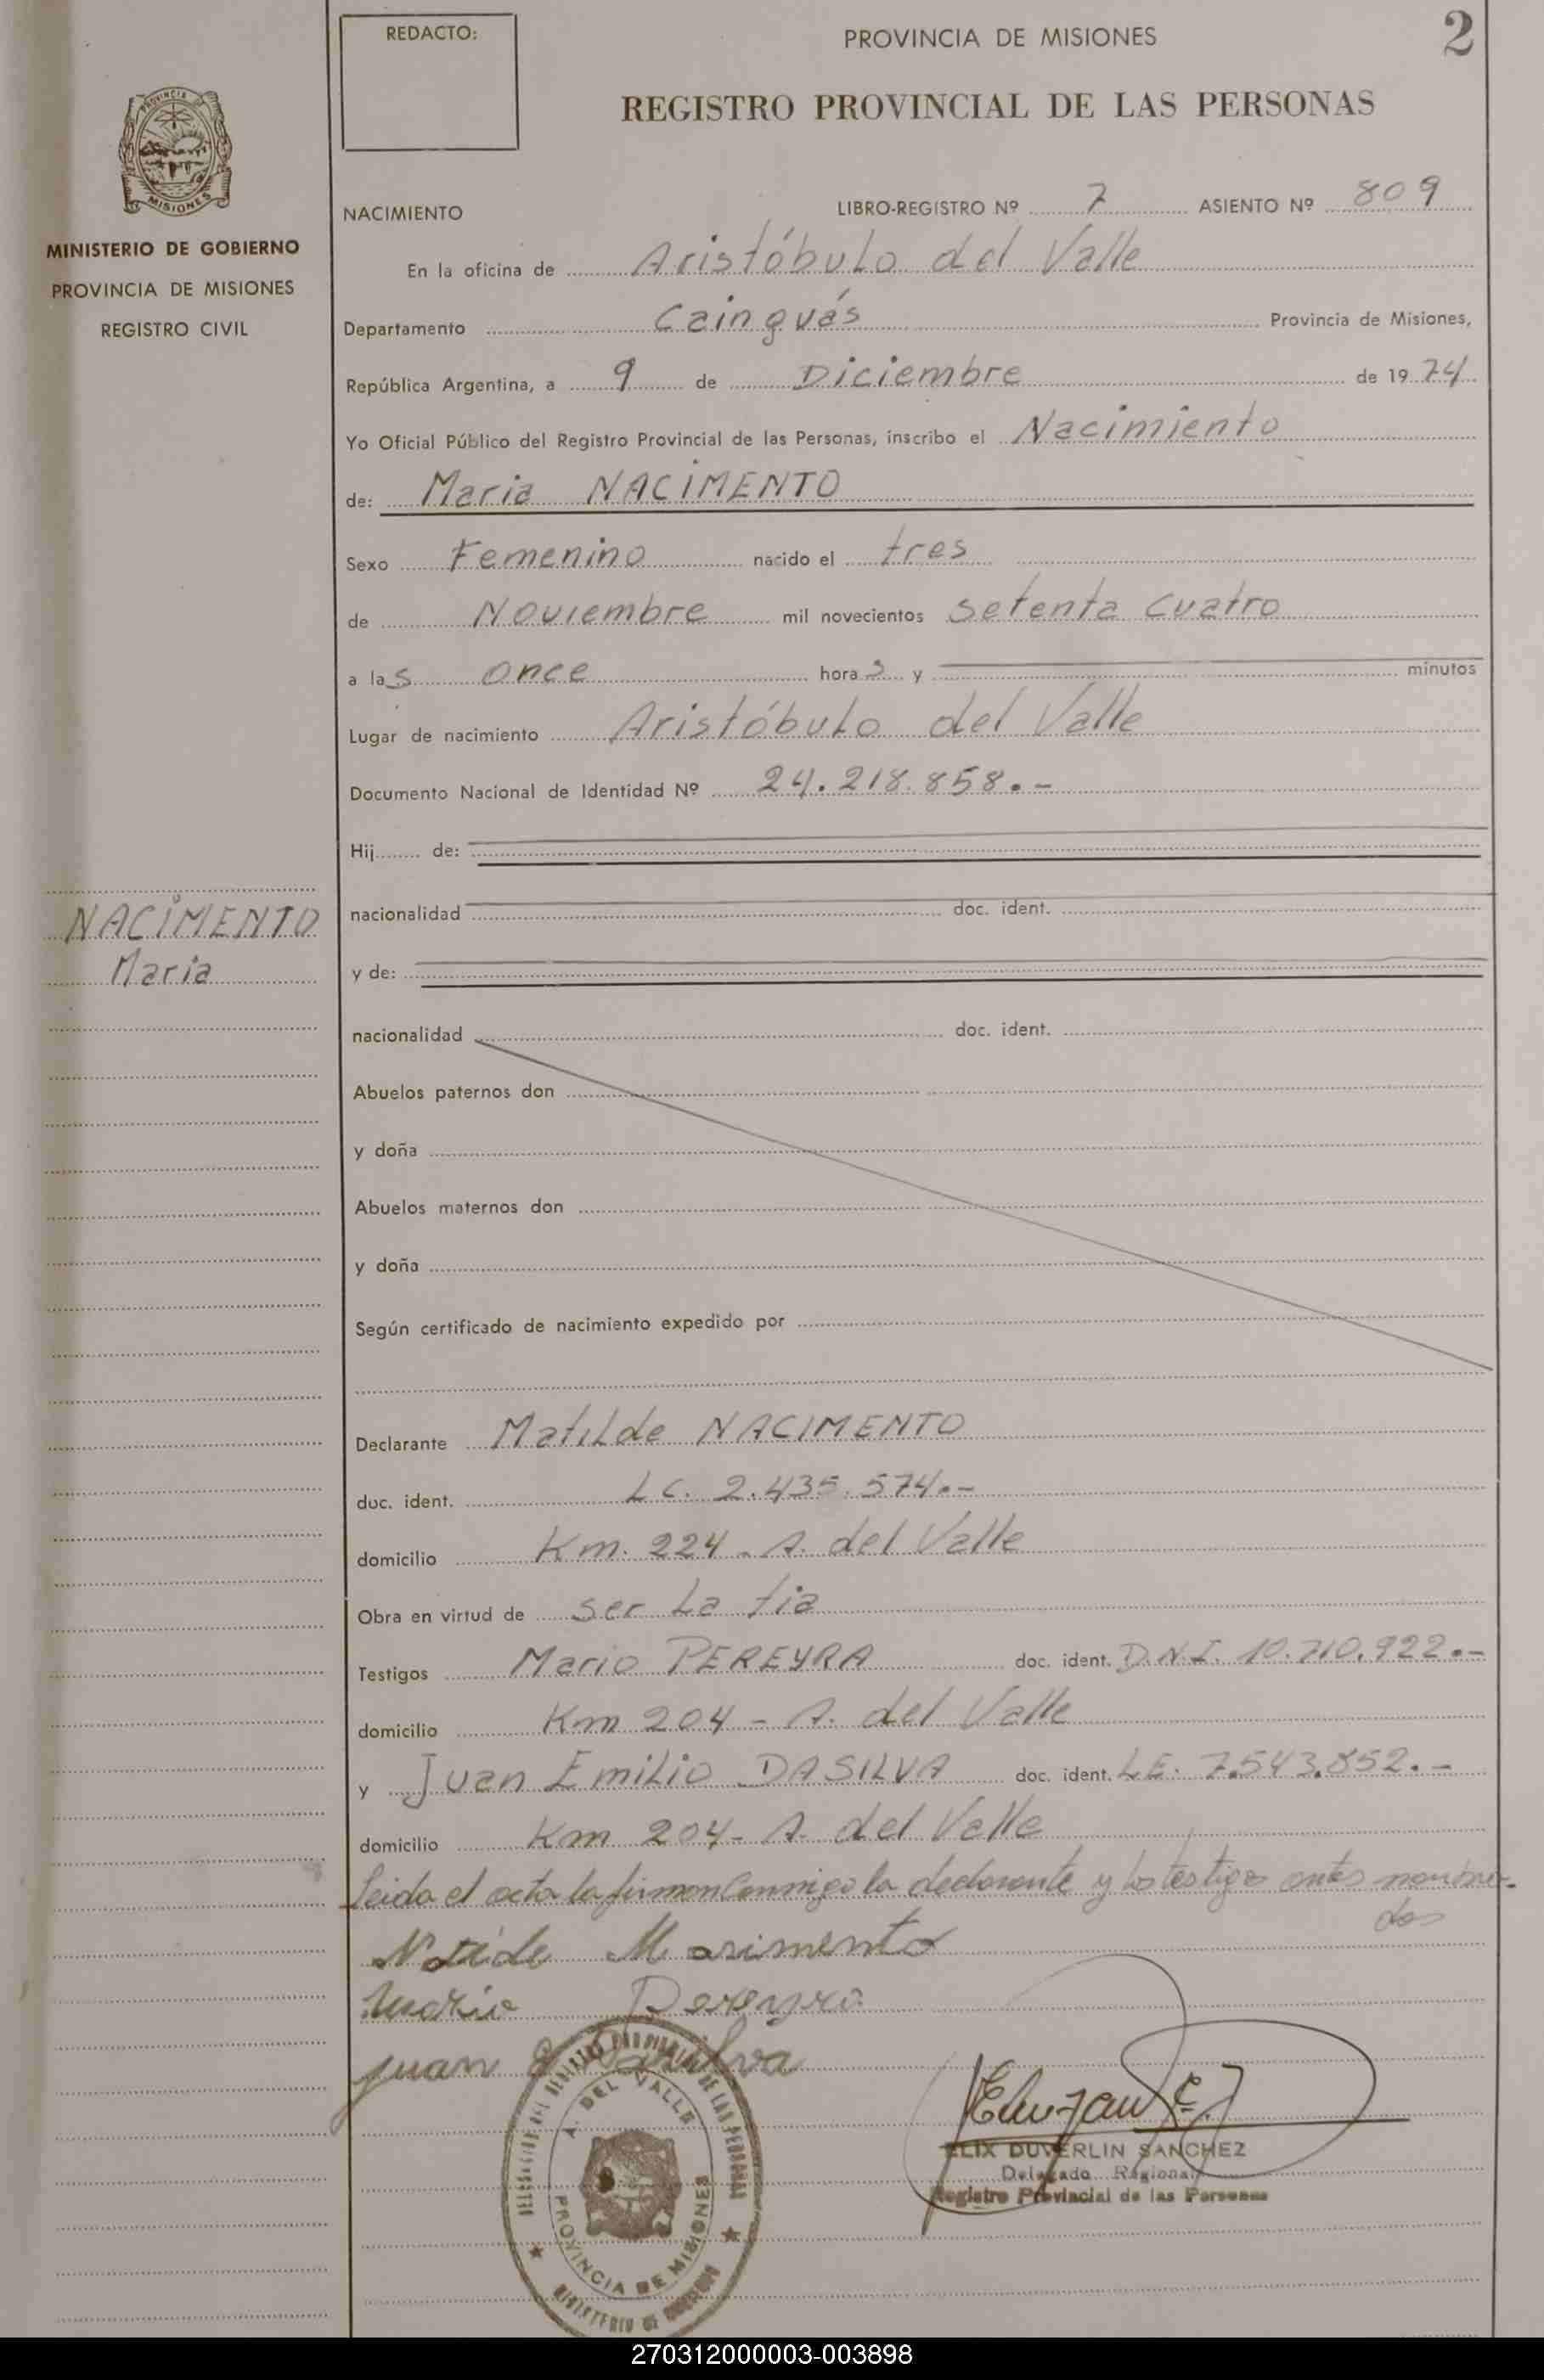 REDACTO:
PROVINCIA DE MISIONES
2
REGISTRO PROVINCIAL DE LAS PERSONAS
PROVINCIA DE
MISIONES
MINISTERIO DE GOBIERNO
PROVINCIA DE MISIONES
REGISTRO CIVIL
NACIMIENTO
LIBRO-REGISTRO Nº 7 ASIENTO Nº 809
En la oficina de Aristóbulo del Valle
Departamento Cainguás Provincia de Misiones,
República Argentina, a 9 de Diciembre de 1974
Yo Oficial Público del Registro Provincial de las Personas, inscribo el Nacimiento
de: Maria NACIMENTO
Sexo Femenino nacido el tres
de Noviembre mil novecientos setenta cuatro
a las once horas y minutos
Lugar de nacimiento Aristóbulo del Valle
Documento Nacional de Identidad Nº 24.218.858.-
Hij de:
NACIMENTO
Maria
nacionalidad doc. ident.
y de:
nacionalidad doc. ident.
Abuelos paternos don
y doña
Abuelos maternos don
y doña
Según certificado de nacimiento expedido por
Declarante Matilde NACIMENTO
doc. ident. LC. 2.435.574.-
domicilio Km. 224 - A. del Valle
Obra en virtud de ser la tia
Testigos Mario PEREYRA doc. ident. D.N.I. 10.710.922.-
domicilio Km 204 - A. del Valle
y Juan Emilio DASILVA doc. ident. LE. 7.543.852.-
domicilio Km 204 - A. del Valle
Leida el acta la firman conmigo la declarante y los testigos antes nombra-
dos
Mario Pereyra
Juan E Dasilva
A. DEL VALLE
PROVINCIA DE MISIONES
ELIX DUVERLIN SANCHEZ
Delegado Regional
Registro Provincial de las Personas
270312000003-003898